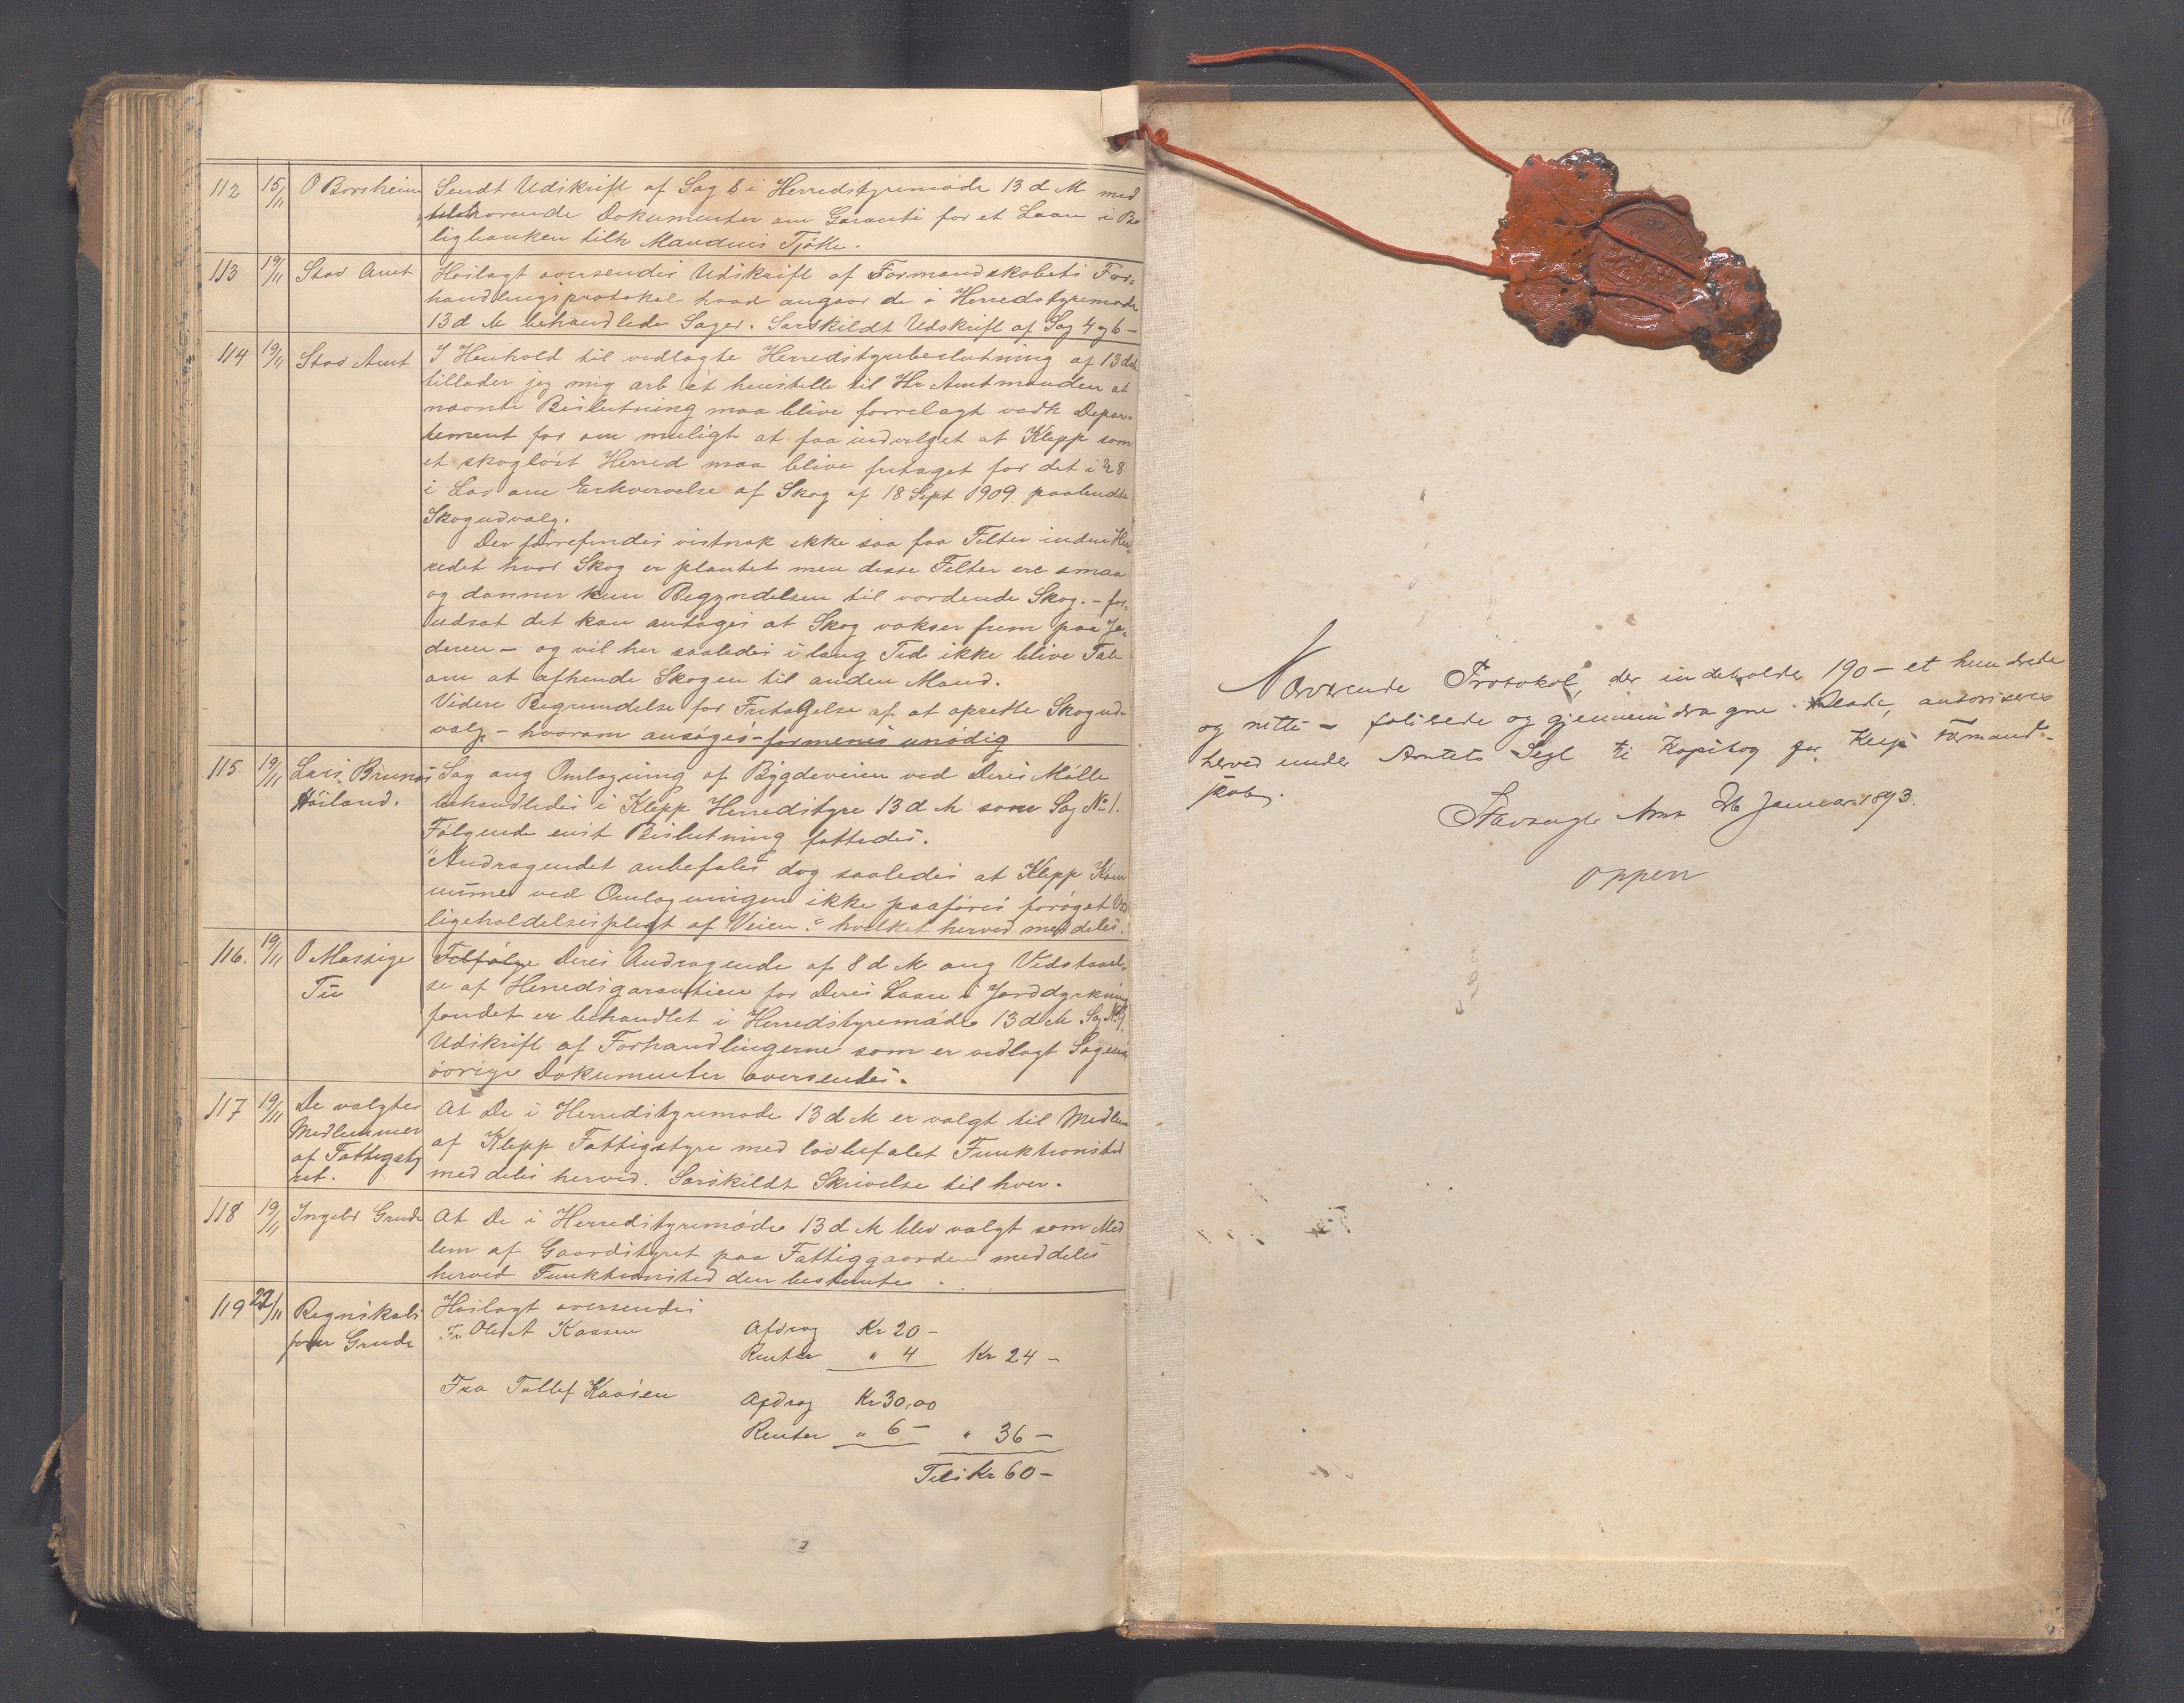 112 15/11 O Borsheim Sendt Udskrift af Sag 6 i Herredstyremøde 13 d M med
tilhørende Dokumenter om Garanti for et Laan i Bo
ligbanken tilh Maudius Tjøtte.
113 19/11 Stav Amt Hoslagt oversendes Udskrift af Formandskabets For-
handlingsprotokol hvad angaar de i Herredstyremøde
13 d M behandlede Sager. Særskildt Udskrift af Sag 4 og 6 –
114 19/11 Stav Amt I Henhold til vedlagte Herredstyrebeslutning af 13 ds
tillader jeg mig ærb at henstille til Hr Amtmanden at
nævnte Beslutning maa blive forrelagt vedk Depar-
tement for om muligt at faa indvilget at Klepp som
et skogløst Herred maa blive fritaget for det i § 8
i Lov om Erhvervelse af Skog af 18 Sept 1909 paabudte
Skogudvalg.
Der forrefindes vistnok ikke saa faa Felter inden Her-
redet hvor Skog er plantet men disse Felter ere smaa
og danner kun Begyndelsen til vordende Skog. – for-
udsat det kan antages at Skog vokser frem paa Jæ-
deren – og vil her saaledes i lang Tid ikke blive Tale
om at afhende Skogen til anden Mand.
Videre Begrundelse for Fritagelse af at oprette Skogud-
valg – hvorom ansøges – formenes unødig
115 19/11 Lars Brunæs Sag ang Omlægning af Bygdeveien ved Deres Mølle
Høiland. behandledes i Klepp Herredstyre 13 d M som Sag No 1.
Følgende enst Beslutning fattedes.
"Andragendet anbefales dog saaledes at Klepp Kom
mune ved Omlægningen ikke paaføres forøget Ved
ligeholdelsespligt af Veien." hvilket herved meddeles.
116. 19/11 O Massige Tilfølge Deres Andragende af 8 d M ang Vedstaael-
Tu se af Herredsgarantien for Deres Laan i Jorddyrkning
fondet er behandlet i Herredstyremøde 13 d M Sag No 9.
Udskrift af Forhandlingerne som er vedlagt Sagens
øvrige Dokumenter oversendes.
117 19/11 De valgte At De i Herredstyremøde 13 d M er valgt til Medlem
Medlemmer af Klepp Fattigstyre med lovbefalet Funktionstid
af Fattigsty meddeles herved. Særskildt Skrivelse til hver.
ret.
118 19/11 Ingebr Grude At De i Herredstyremøde 13 d M blev valgt som Med
lem af Gaardstyret paa Fattiggaarden meddeles
herved Funktionstid den bestemte.
119 22/11 Regnskabs Hoslagt oversendes
fører Grude Fr Ole A Kaasen Afdrag Kr 20 –
Renter " 4 Kr 24 –
Fra Tollef Kaasen Afdrag Kr 30,00
Renter " 6 – " 36 –
Tils Kr 60 –
Nærværende Protokol, der indeholder 190 – et hundrede
og nitti – folierede og gjennemdragne Blade, autoriseres
herved under Amtets Segl til Kopibog for Klep Formand-
skab.
Stavanger Amt 26 Januar 1893.
Oppen